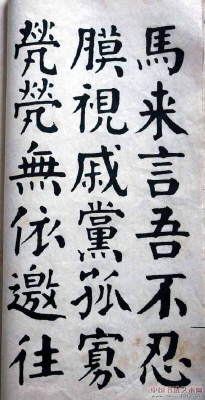 馬来言吾不忍
膜視戚黨孤寡
煢煢無依邀往